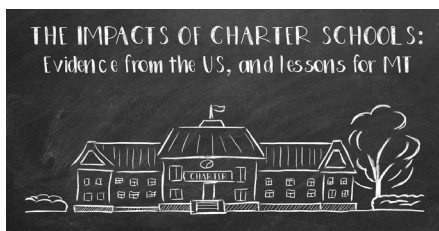 THE IMPACTS OF CHARTER SCHOOLS:
Evidence from the US, and lessons for MT
CHARTER